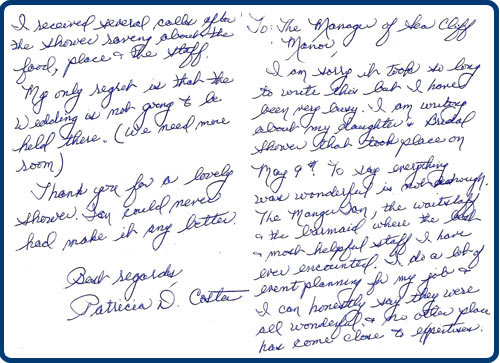 To: The Manager of Sea Cliff
Manor,
I am sorry it took so long
to write this but I have
been very busy. I am writing
about my daughter's Bridal
Shower that took place on
May 9th. To say everything
was wonderful is not enough.
The Manger Jon, the waitstaff
& the barmaid where the best
& most helpful staff I have
ever encounted. I do a lot of
event planning for my job &
I can honestly say they were
all wonderful & no other place
has come close to expertises.
I received several calls after
the shower saying about the
food, place & the staff.
My only regret is that the
Wedding is not going to be
held there. (We need more
room)
Thank you for a lovely
shower. Jon could never
had make it any better.
Best regards,
Patricia D.